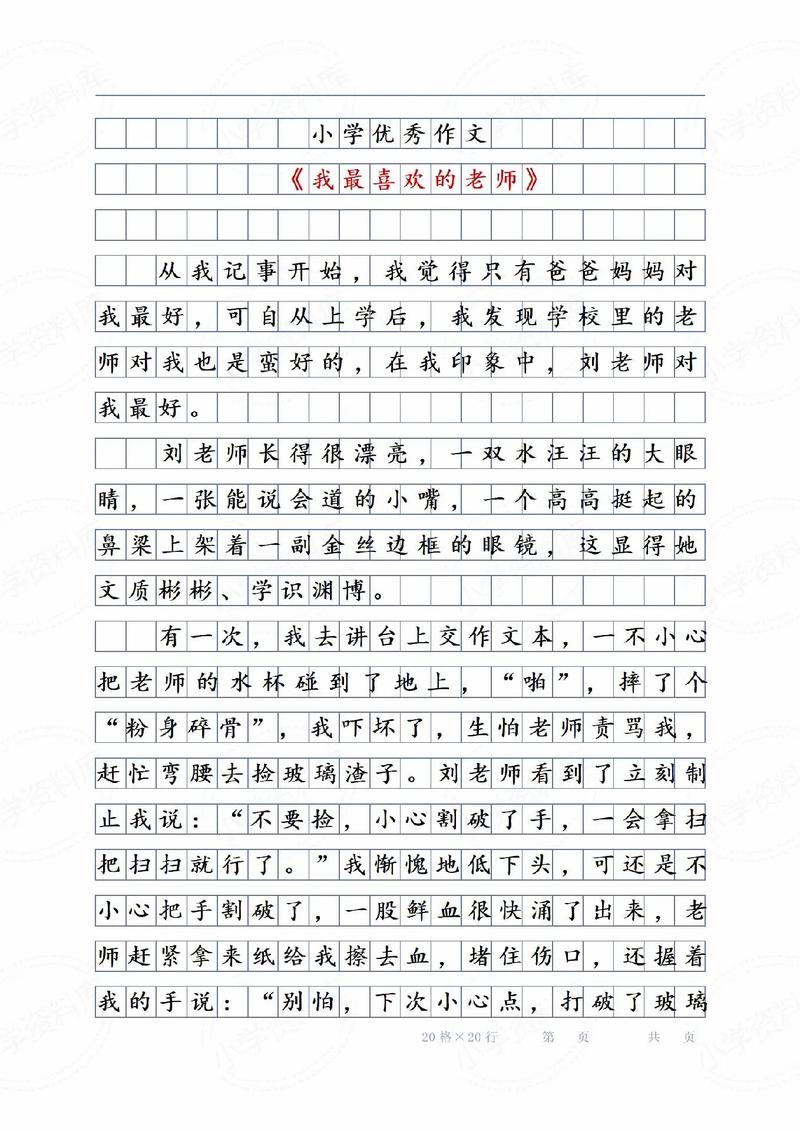 小学优秀作文
《我最喜欢的老师》
从我记事开始，我觉得只有爸爸妈妈对
我最好，可自从上学后，我发现学校里的老
师对我也是蛮好的，在我印象中，刘老师对
我最好。
刘老师长得很漂亮，一双水汪汪的大眼
睛，一张能说会道的小嘴，一个高高挺起的
鼻梁上架着一副金丝边框的眼镜，这显得她
文质彬彬、学识渊博。
有一次，我去讲台上交作文本，一不小心
把老师的水杯碰到了地上，“啪”，摔了个
“粉身碎骨”，我吓坏了，生怕老师责骂我，
赶忙弯腰去捡玻璃渣子。刘老师看到了立刻制
止我说：“不要捡，小心割破了手，一会拿扫
把扫扫就行了。”我惭愧地低下头，可还是不
小心把手割破了，一股鲜血很快涌了出来，老
师赶紧拿来纸给我擦去血，堵住伤口，还握着
我的手说：“别怕，下次小心点，打破了玻璃
20格×20行 第 页 共 页